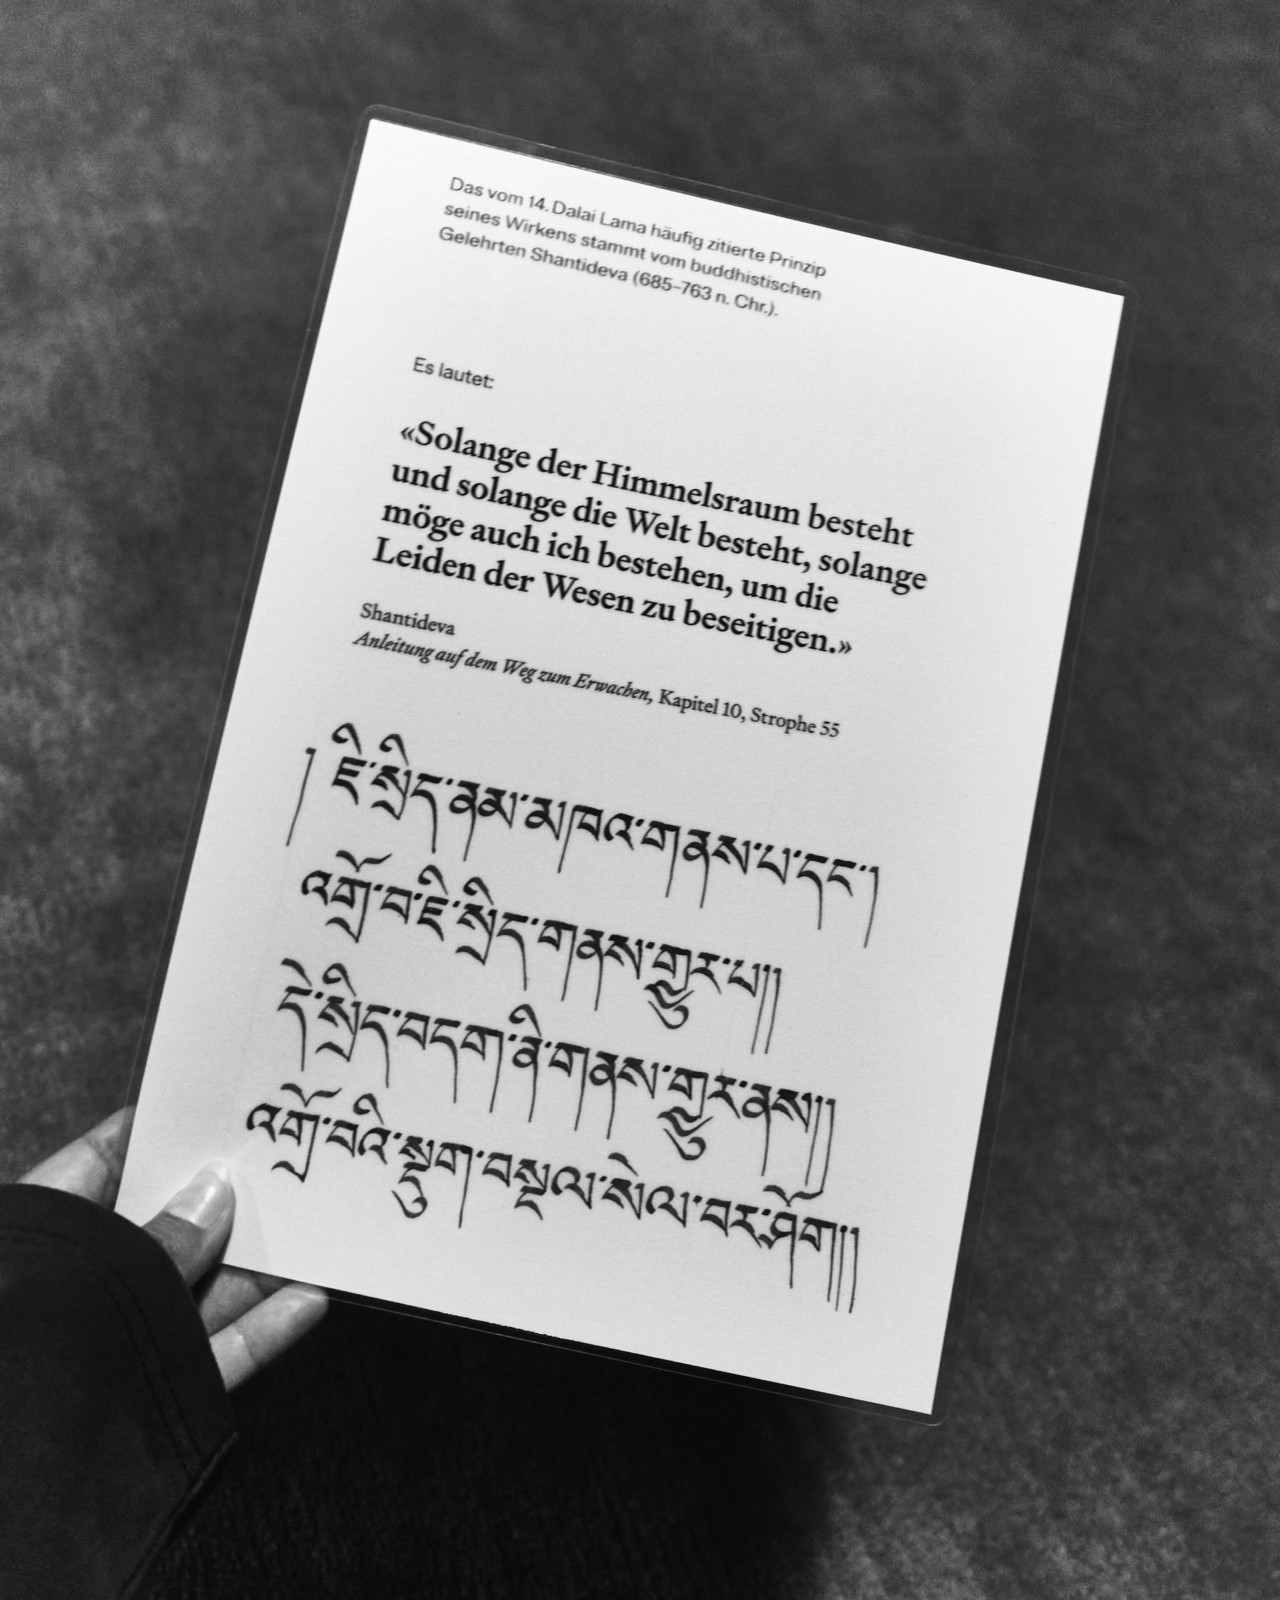 Das vom 14. Dalai Lama häufig zitierte Prinzip
seines Wirkens stammt vom buddhistischen
Gelehrten Shantideva (685–763 n. Chr.).
Es lautet:
«Solange der Himmelsraum besteht
und solange die Welt besteht, solange
möge auch ich bestehen, um die
Leiden der Wesen zu beseitigen.»
Shantideva
Anleitung auf dem Weg zum Erwachen, Kapitel 10, Strophe 55
།ཇི་སྲིད་ནམ་མཁའ་གནས་པ་དང་།
འགྲོ་བ་ཇི་སྲིད་གནས་གྱུར་པ།།
དེ་སྲིད་བདག་ནི་གནས་གྱུར་ནས།།
འགྲོ་བའི་སྡུག་བསྔལ་སེལ་བར་ཤོག།།